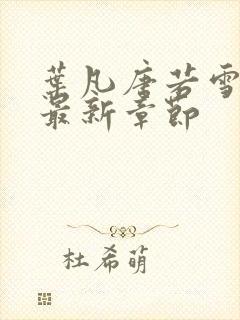 葉凡唐若雪
最新章節
杜希萌